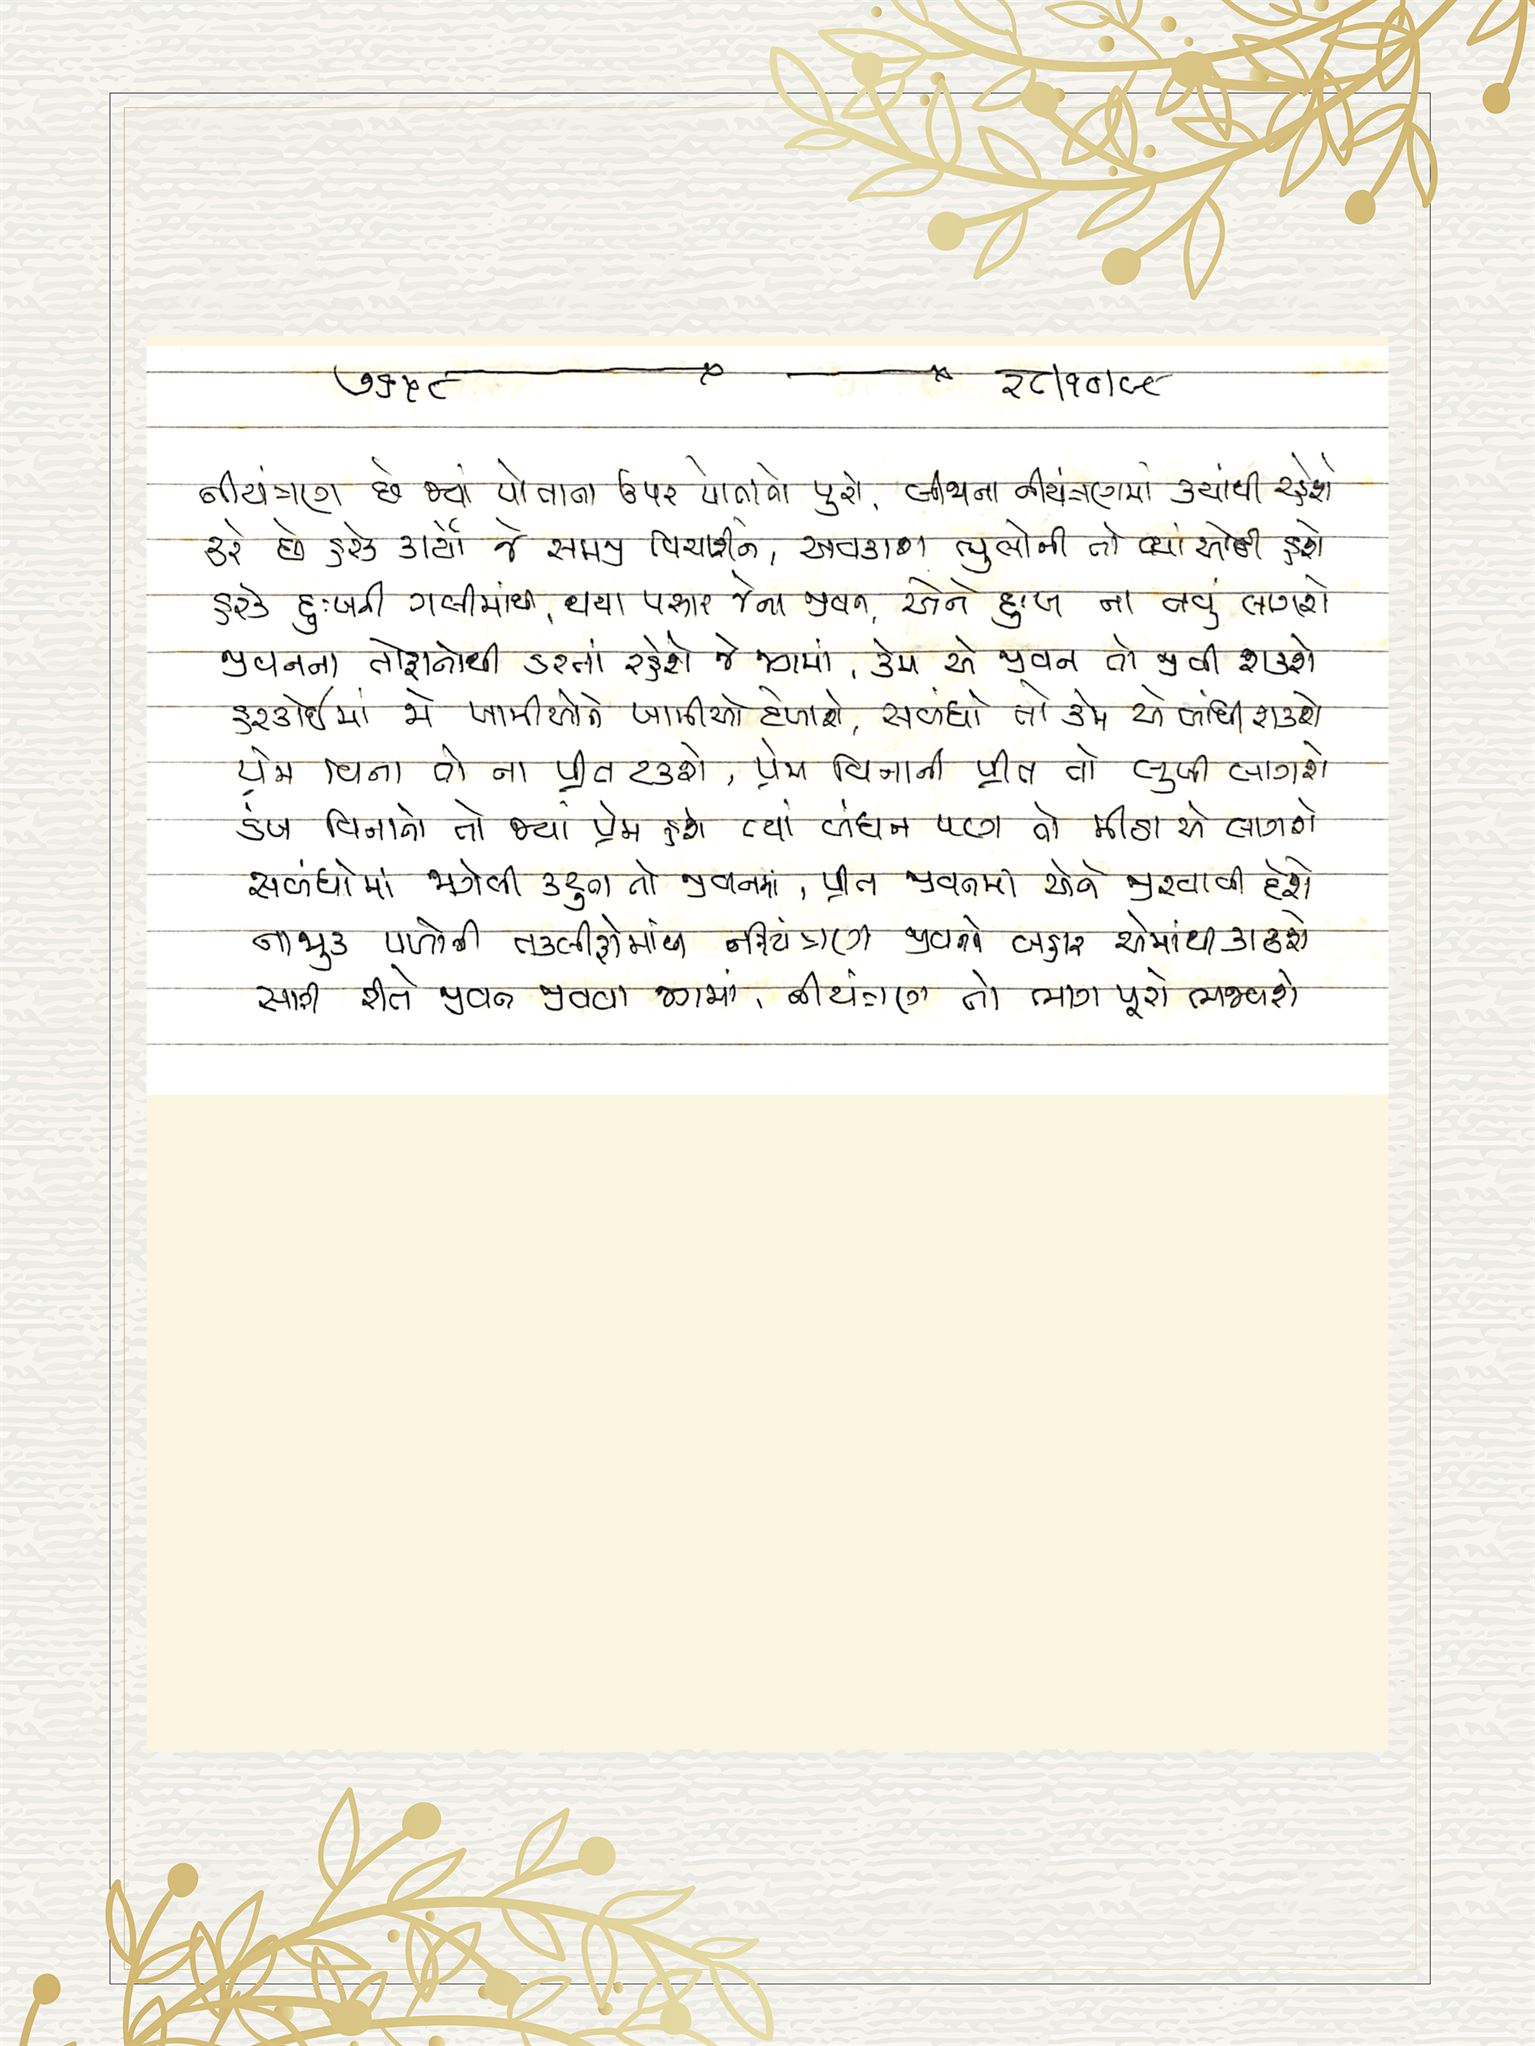 ૭૬૫૯ ૨૮/૧૦/૮૯
નીયંત્રણ છે જ્યાં પોતાના ઉપર પોતાનો પુરો, બીજાના નીયંત્રણમાં ક્યાંથી રહેશે
કરે છે હરેક કાર્યો જે સમજી વિચારીને, અવકાશ ભુલોની તો ત્યાં ઓછી હશે
હરેક દુઃખની ગલીમાંથી, થયા પસાર જેના જીવન, એને દુઃખ ના નવું લાગશે
જીવનના તોફાનોથી ડરતાં રહેશે જે જગમાં, કેમ એ જીવન તો જીવી શકશે
હરકોઈમાં જે ખામીઓને ખામીઓ દેખાશે, સબંધો તો કેમ એ બાંધી શકશે
પ્રેમ વિના તો ના પ્રીત ટકશે, પ્રેમ વિનાની પ્રીત તો લુખી લાગશે
ડંખ વિનાનો તો જ્યાં પ્રેમ હશે ત્યાં બંધન પણ તો મીઠા એ લાગશે
સબંધોમાં જાગેલી કટુતા તો જીવનમાં, પ્રીત જીવનમાં એને જીરવાવી દેશે
નાજુક પળોની તકલીફોમાંથી નિયંત્રણ જીવનને બહાર એમાંથી કાઢશે
સારી રીતે જીવન જીવવા જગમાં, નીયંત્રણ તો ભાગ પૂરો ભજવશે